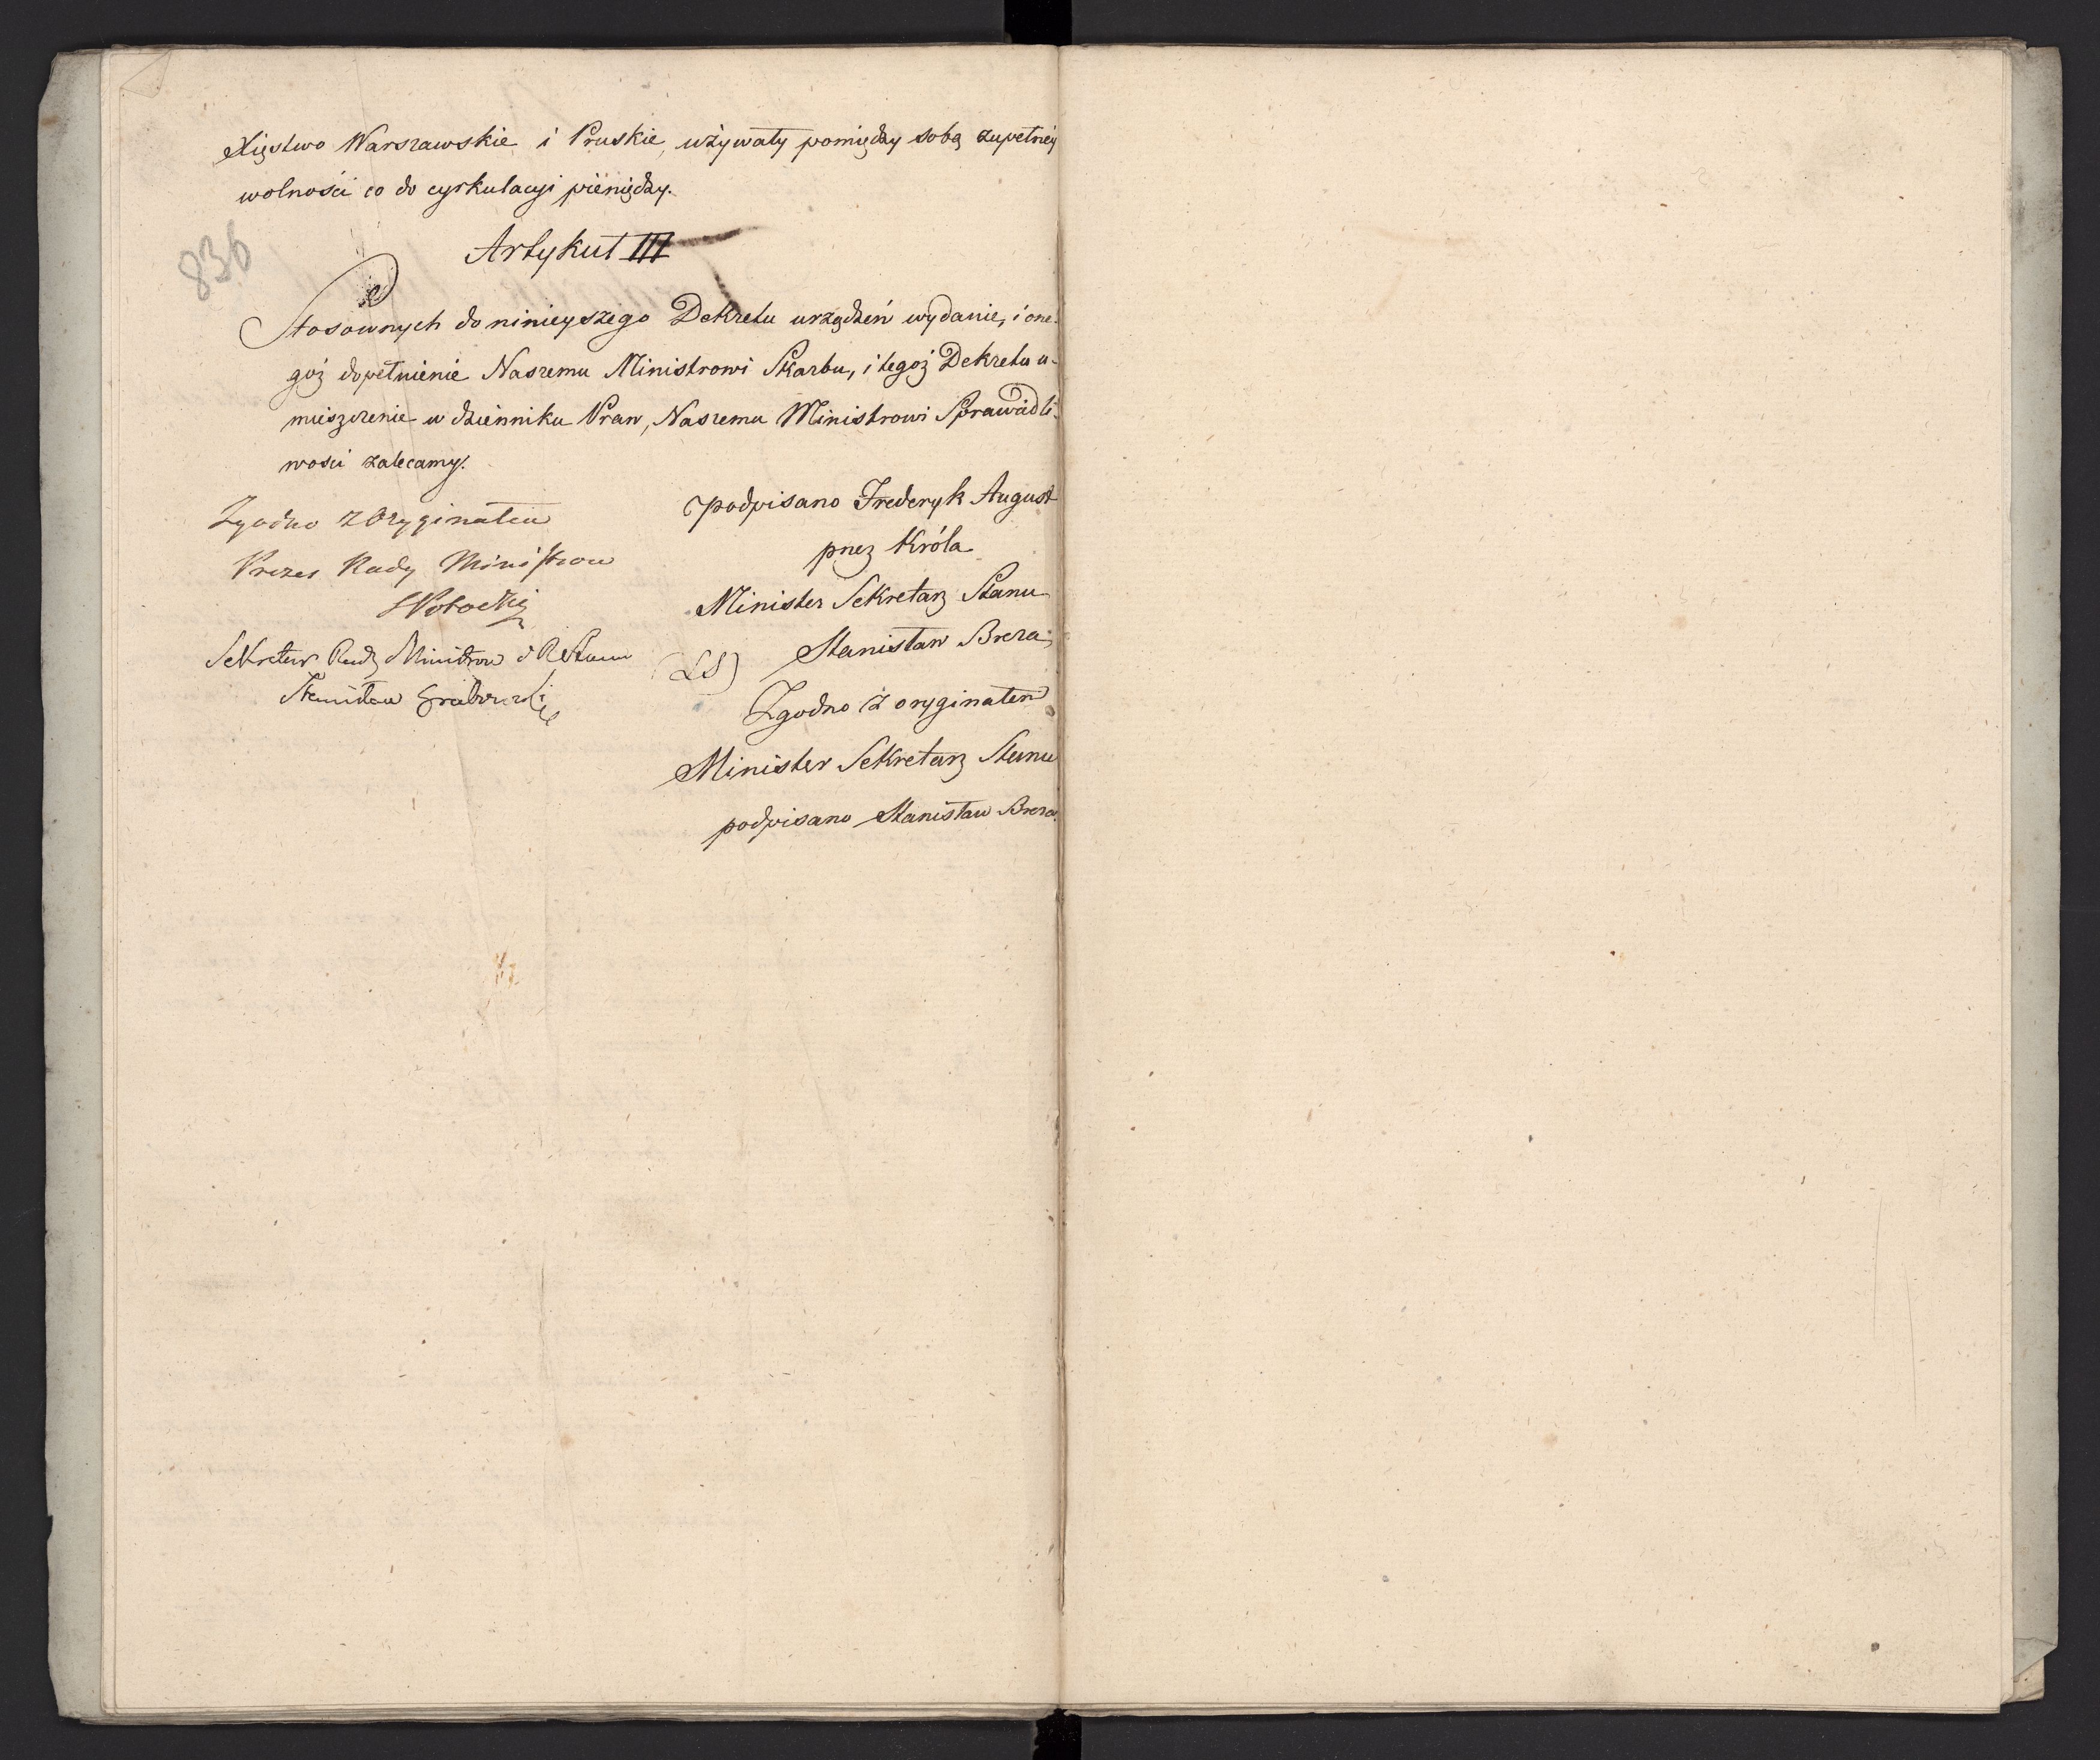 Xięstwo Warszawskie i Pruskie, używały pomiędzy sobą zupełnéy
wolności co do cyrkulacyi piéniędzy.
836
Artykuł III
Stosownych do ninieyszego Dekretu urządzeń wydanie, i one-
goż dopełniénie Naszemu Ministrowi Skarbu, i tegoż Dekretu u-
mieszczenie w dziénniku Praw, Naszemu Ministrowi Sprawiedli-
wości zalecamy.
podpisano Frederyk August
przez Króla
Minister Sekretarz Stanu
(LS) Stanisław Breza
Zgodno z oryginałem
Minister Sekretarz Stanu
podpisano Stanisław Breza
Zgodno z Oryginałem
Prezes Rady Ministrow
Potocki
Sekretarz Rady Ministrow i R Stanu
Stanisław Grabowski